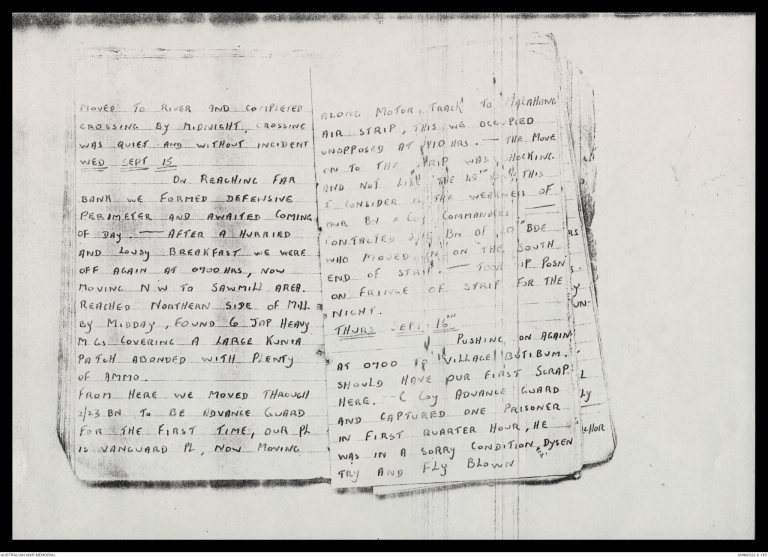 MOVED TO RIVER AND COMPLETED
CROSSING BY MIDNIGHT, CROSSING
WAS QUIET AND WITHOUT INCIDENT
WED SEPT 15
ON REACHING FAR
BANK WE FORMED DEFENSIVE
PERIMETER AND AWAITED COMING
OF DAY. — AFTER A HURRIED
AND LOUSY BREAKFAST WE WERE
OFF AGAIN AT 0700 HRS, NOW
MOVING N W TO SAWMILL AREA.
REACHED NORTHERN SIDE OF MILL
BY MIDDAY, FOUND 6 JAP HEAVY
M.GS COVERING A LARGE KUNIA
PATCH ABONDED WITH PLENTY
OF AMMO.
FROM HERE WE MOVED THROUGH
2/23 BN TO BE ADVANCE GUARD
FOR THE FIRST TIME, OUR PL
IS VANGUARD PL, NOW MOVING
ALONG MOTOR TRACK TO MALAHANG
AIR STRIP, THIS WE OCCUPIED
UNOPPOSED AT 1710 HRS. — THE MOVE
ON TO THE STRIP WAS SHOCKING
AND NOT LIKE THE THIS
I CONSIDER IS THE WEAKNESS OF
OUR BN & COY COMMANDERS —
CONTACTED BN OF BDE
WHO MOVED IN ON THE SOUTH
END OF STRIP. — TOOK UP POSN
ON FRINGE OF STRIP FOR THE
NIGHT.
THURS SEPT. 16TH
PUSHING ON AGAIN
AT 0700 VILLAGE BUTIBUM.
SHOULD HAVE OUR FIRST SCRAP
HERE. — C COY ADVANCE GUARD
AND CAPTURED ONE PRISONER
IN FIRST QUARTER HOUR, HE
WAS IN A SORRY CONDITION, DYSEN
TRY AND FLY BLOWN
RS
S.
Y
UN.
L
LY
CHOR
AUSTRALIAN WAR MEMORIAL